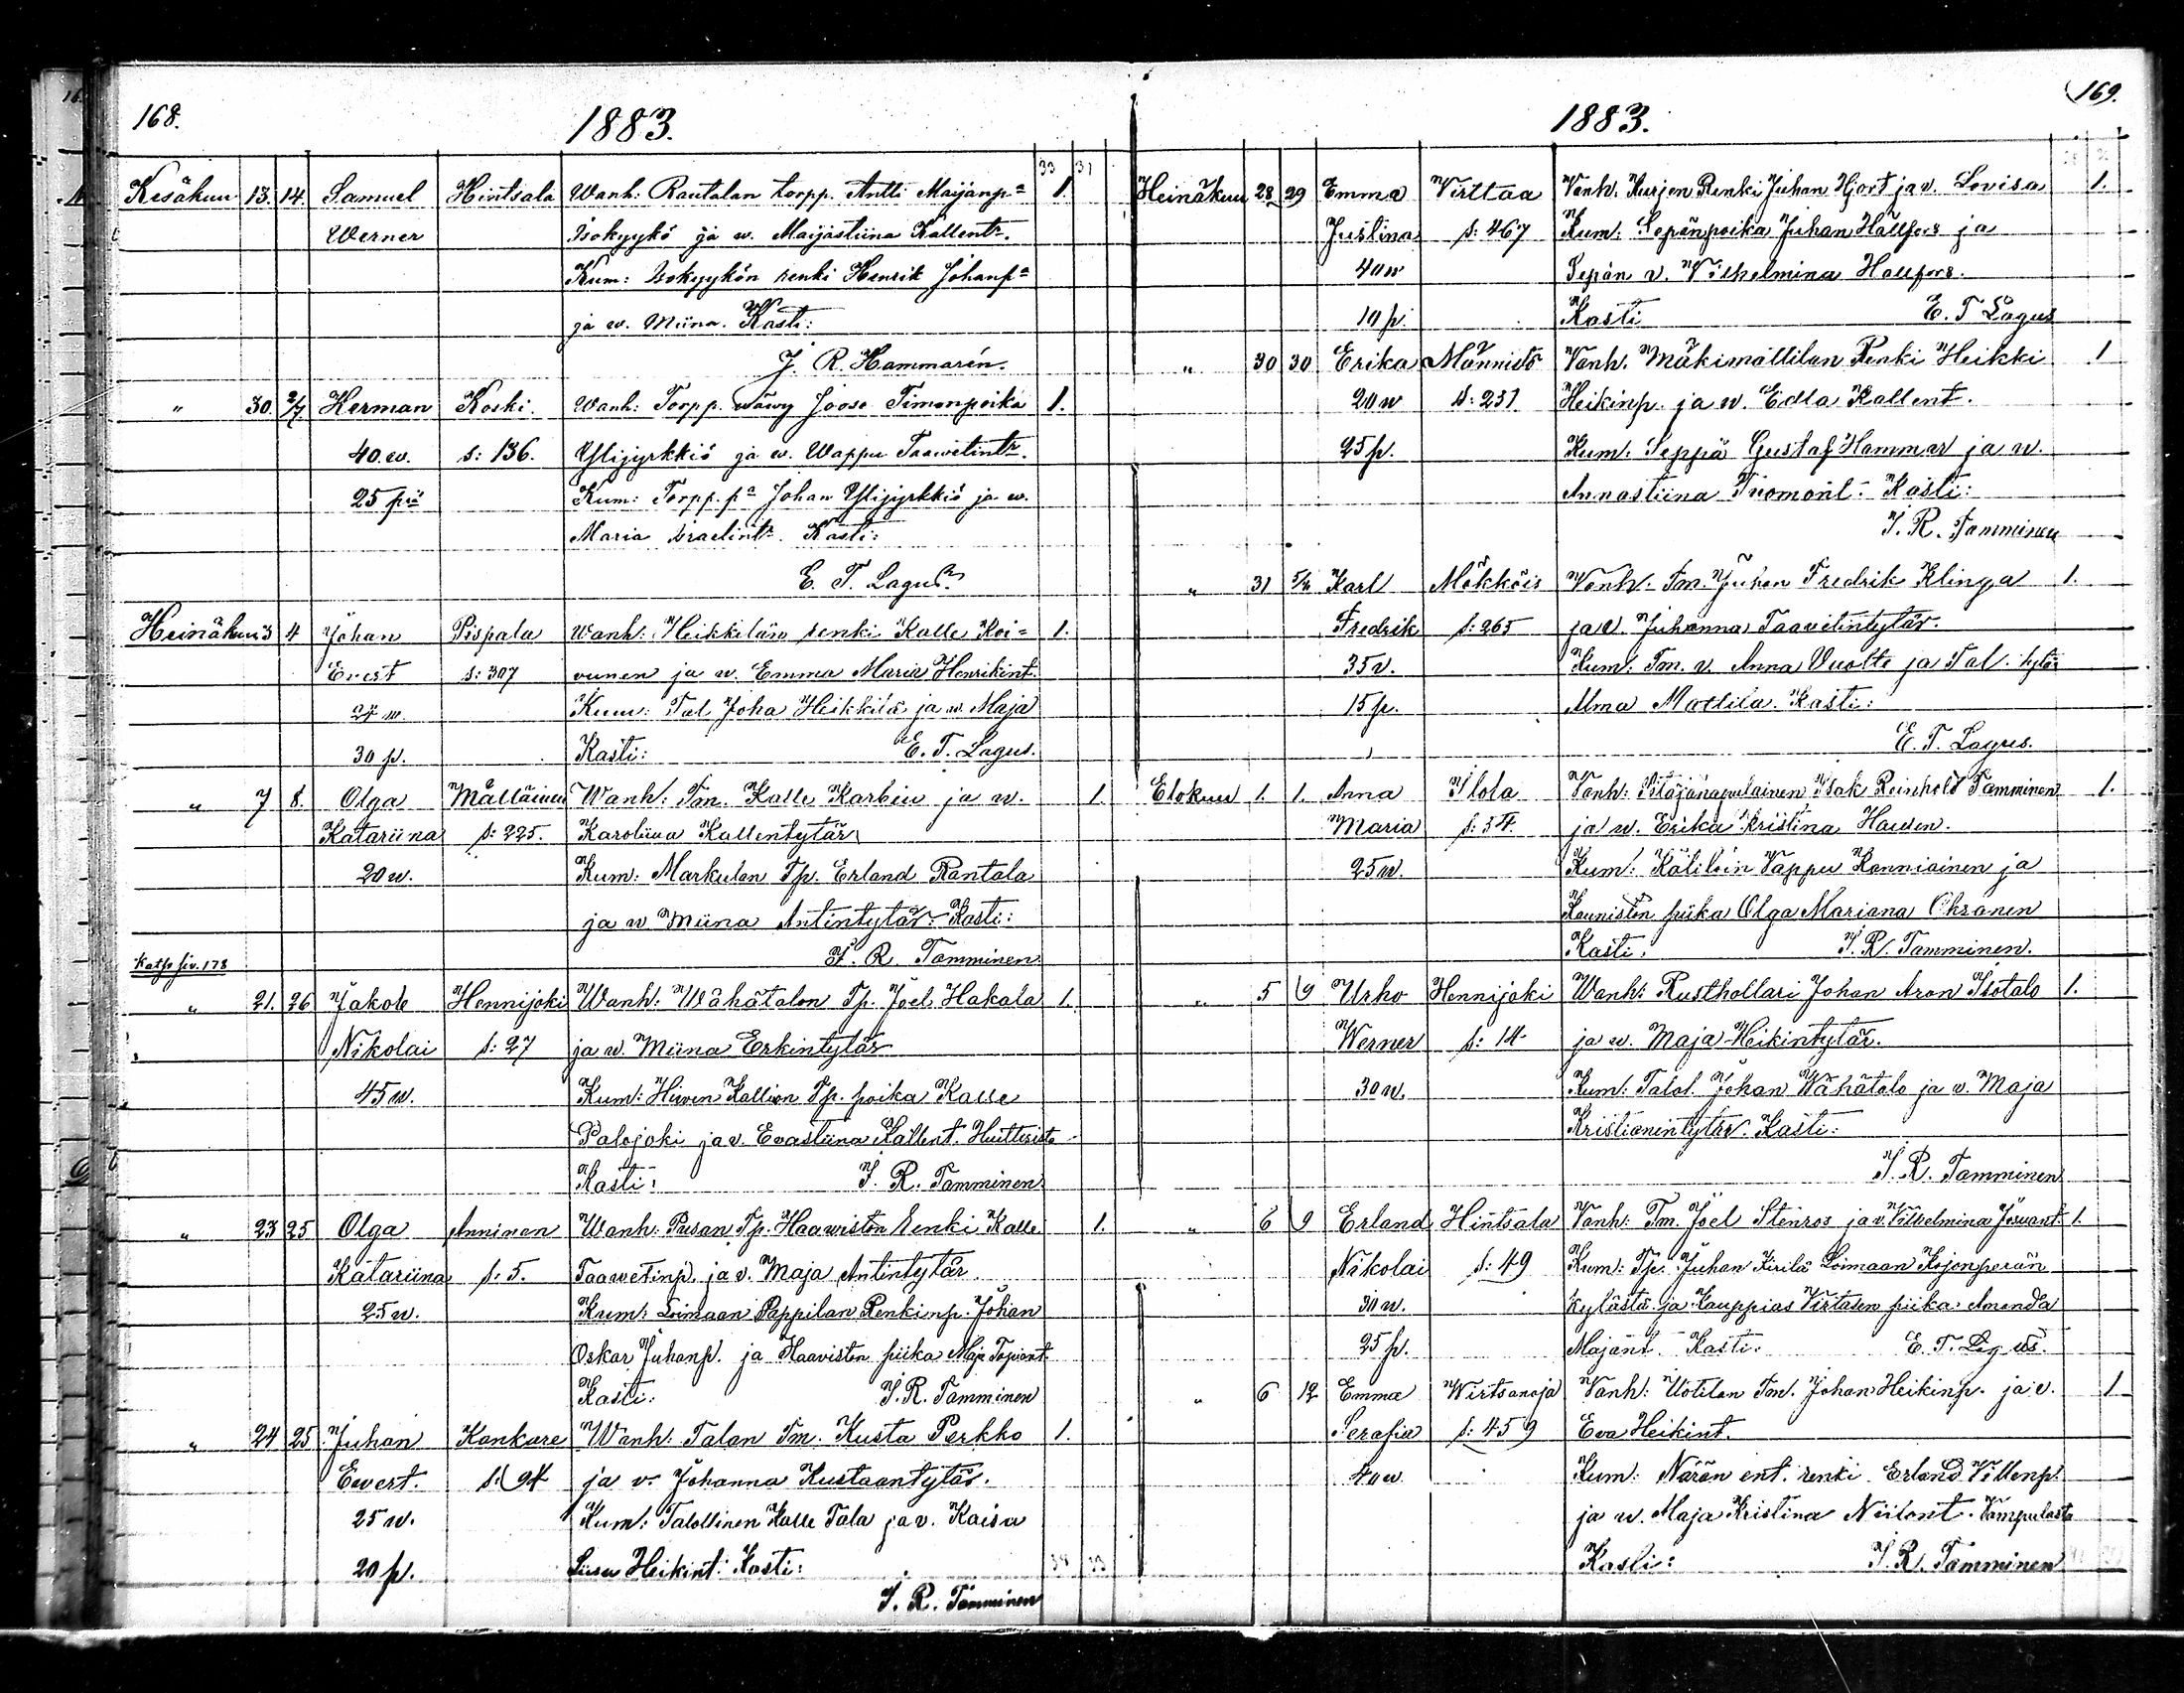 168.
1883.
33 31
Kesäkuu 13. 14. Samuel Hintsala Wanh: Rautalan torpp. Antti Maijanpa 1.
Werner Isokyykö ja w. Maijastiina Kallentr.
Kum: Isokyykön renki Henrik Johanpa
ja w. Miina. Kasti:
J. R. Hammarén.
" 30. 2/7 Herman Koski. Wanh: Torpp. wäwy Joose Timonpoika 1.
40. w. s: 136. Ylijyrkkiö ja w. Wappu Taawetintr.
25 piä Kum: Torpp. pa Johan Ylijyrkkiö ja w.
Maria Israelintr. Kasti:
E. T. Lagus.
Heinäkuu 3 4 Johan Pispala Wanh: Heikkilän renki Kalle Koi= 1.
Evert s: 307 vunen ja w. Emma Maria Henrikint.
Kum: Tal Joha Heikkilä ja w. Maja
30 p. Kasti: E. T. Lagus.
" 7 8. Olga Mälläinen Wanh: Tm. Kalle Karbin ja w. 1.
Katariina s: 225. Karoliina Kallentytär
20 w. Kum: Markulan Tp. Erland Rantala
ja w Miina Antintytär. Kasti:
I. R. Tamminen
Katso siv. 178
" 21. 26 Jakob Hennijoki Wanh: Wähätalon Tp. Joel Hakala 1.
Nikolai s: 27 ja w. Miina Erkintytär
45 w. Kum: Hiiven Kallion Tp. poika Kalle
Palojoki ja v. Evastiina Kallent. Huittisista
Kasti: I. R. Tamminen
" 23 25 Olga Anninen Wanh: Pusan Tp. Haawiston Renki Kalle 1.
Katariina s: 5. Taawetinp. ja v. Maja Antintytär.
25 w. Kum: Loimaan Pappilan Renkinp. Johan
Oskar Juhanp. ja Haaviston piika Maja
Kasti: I. R. Tamminen
" 24 25 Juhan Kankare Wanh: Talan Tm. Kusta Perkko 1.
Ewert. s: 94 ja v. Johanna Kustaantytär.
25 w. Kum: Talollinen Kalle Tala ja v. Kaisa
20 p. Liisa Heikint. Kasti: 34 33
I. R. Tamminen
169.
1883.
Heinäkuu 28 29 Emma Virttaa Vanh. Kurjen Renki Juhan Hjort ja v. Lovisa 1.
Justina s: 467 Kum: Sepänpoika Juhan Hällfors ja
40 w Sepän v. Vilhelmina Hällfors.
10 p. Kasti E. T Lagus
" 30 30 Erika Männistö Vanh. Mäkimattilan Renki Heikki 1
20 w s: 231. Heikinp. ja w. Edla Kallent.
25 p. Kum: Seppä Gustaf Hammar ja w.
Annastiina Tuomont. Kasti:
I. R. Tamminen
" 31 5/8 Karl Mökköis Vanh. Tm. Juhan Fredrik Klinga 1.
Fredrik s: 265 ja v. Juhanna Taavetintytär.
35 v. Kum: Tm. v. Anna Vuolte ja Tal. tytär
15 p. Alma Mattila. Kasti:
E. T. Lagus.
Elokuu 1. 1. Anna Ilola Vanh: Pitäjänapulainen Isak Reinhold Tamminen 1.
Maria s: 34. ja w. Erika Kristina
25 w. Kum: Kätilöin Vappu Kanniainen ja
Kauniston piika Olga Mariana Ohranen
Kasti: I. R. Tamminen.
" 5 9 Urho Hennijoki Wanh: Rusthollari Johan Aron Isotalo 1.
Werner s: 14 ja w. Maja Heikintytär.
30 w. Kum: Talol. Johan Wähätalo ja v. Maja
Kristianintytär. Kasti:
I. R. Tamminen
" 6 9 Erland Hintsala Vanh: Tm. Joel Stenros ja v. Vilhelmina 1.
Nikolai s: 49 Kum: Tp. Juhan Kirilä Loimaan Kojonperän
30 w. kylästä ja Kauppias Virtasen piika Amanda
25 p. Majant. Kasti: E. T. Lagus.
" 6 12 Emma Wirtsanoja Vanh: Uotilan Tm. Johan Heikinp. ja v. 1
Serafia s: 459 Eva Heikint.
40 w Kum: Närän ent. renki Erland Villenp.
ja w. Maja Kristina Niilont. Vampulasta
Kasti: I. R. Tamminen